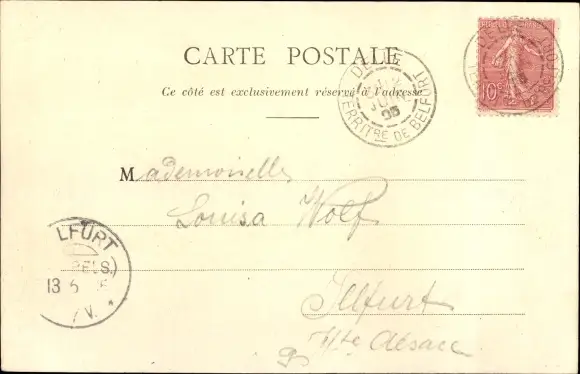 CARTE POSTALE
Ce côté est exclusivement réservé à l'adresse
DELLE
JUIN
05
TERRITRE DE BELFORT
10c
Mademoiselle
Louisa Wolf
Ilfurt
Hte Alsace
LFURT
ELS.)
13 6
V.